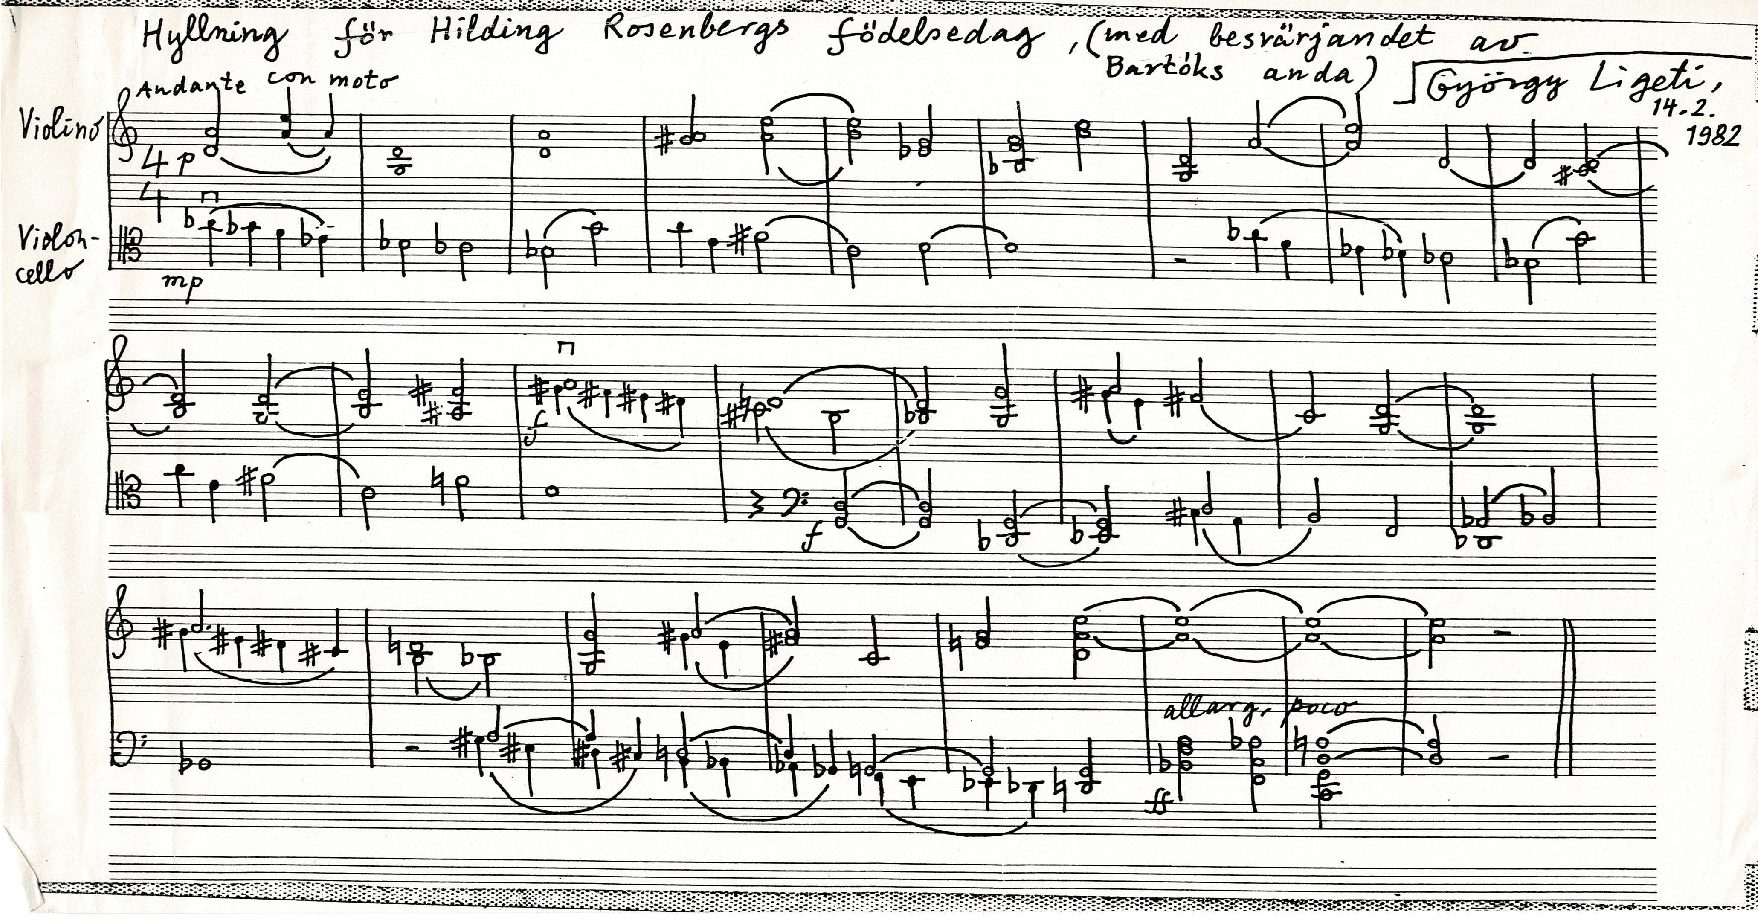 Hyllning för Hilding Rosenbergs födelsedag, (med besvärjandet av
Bartóks anda)
György Ligeti,
14.2.
1982
Andante con moto
Violino
4
4
p
Violon-
cello
mp
f
f
allarg. poco
ff